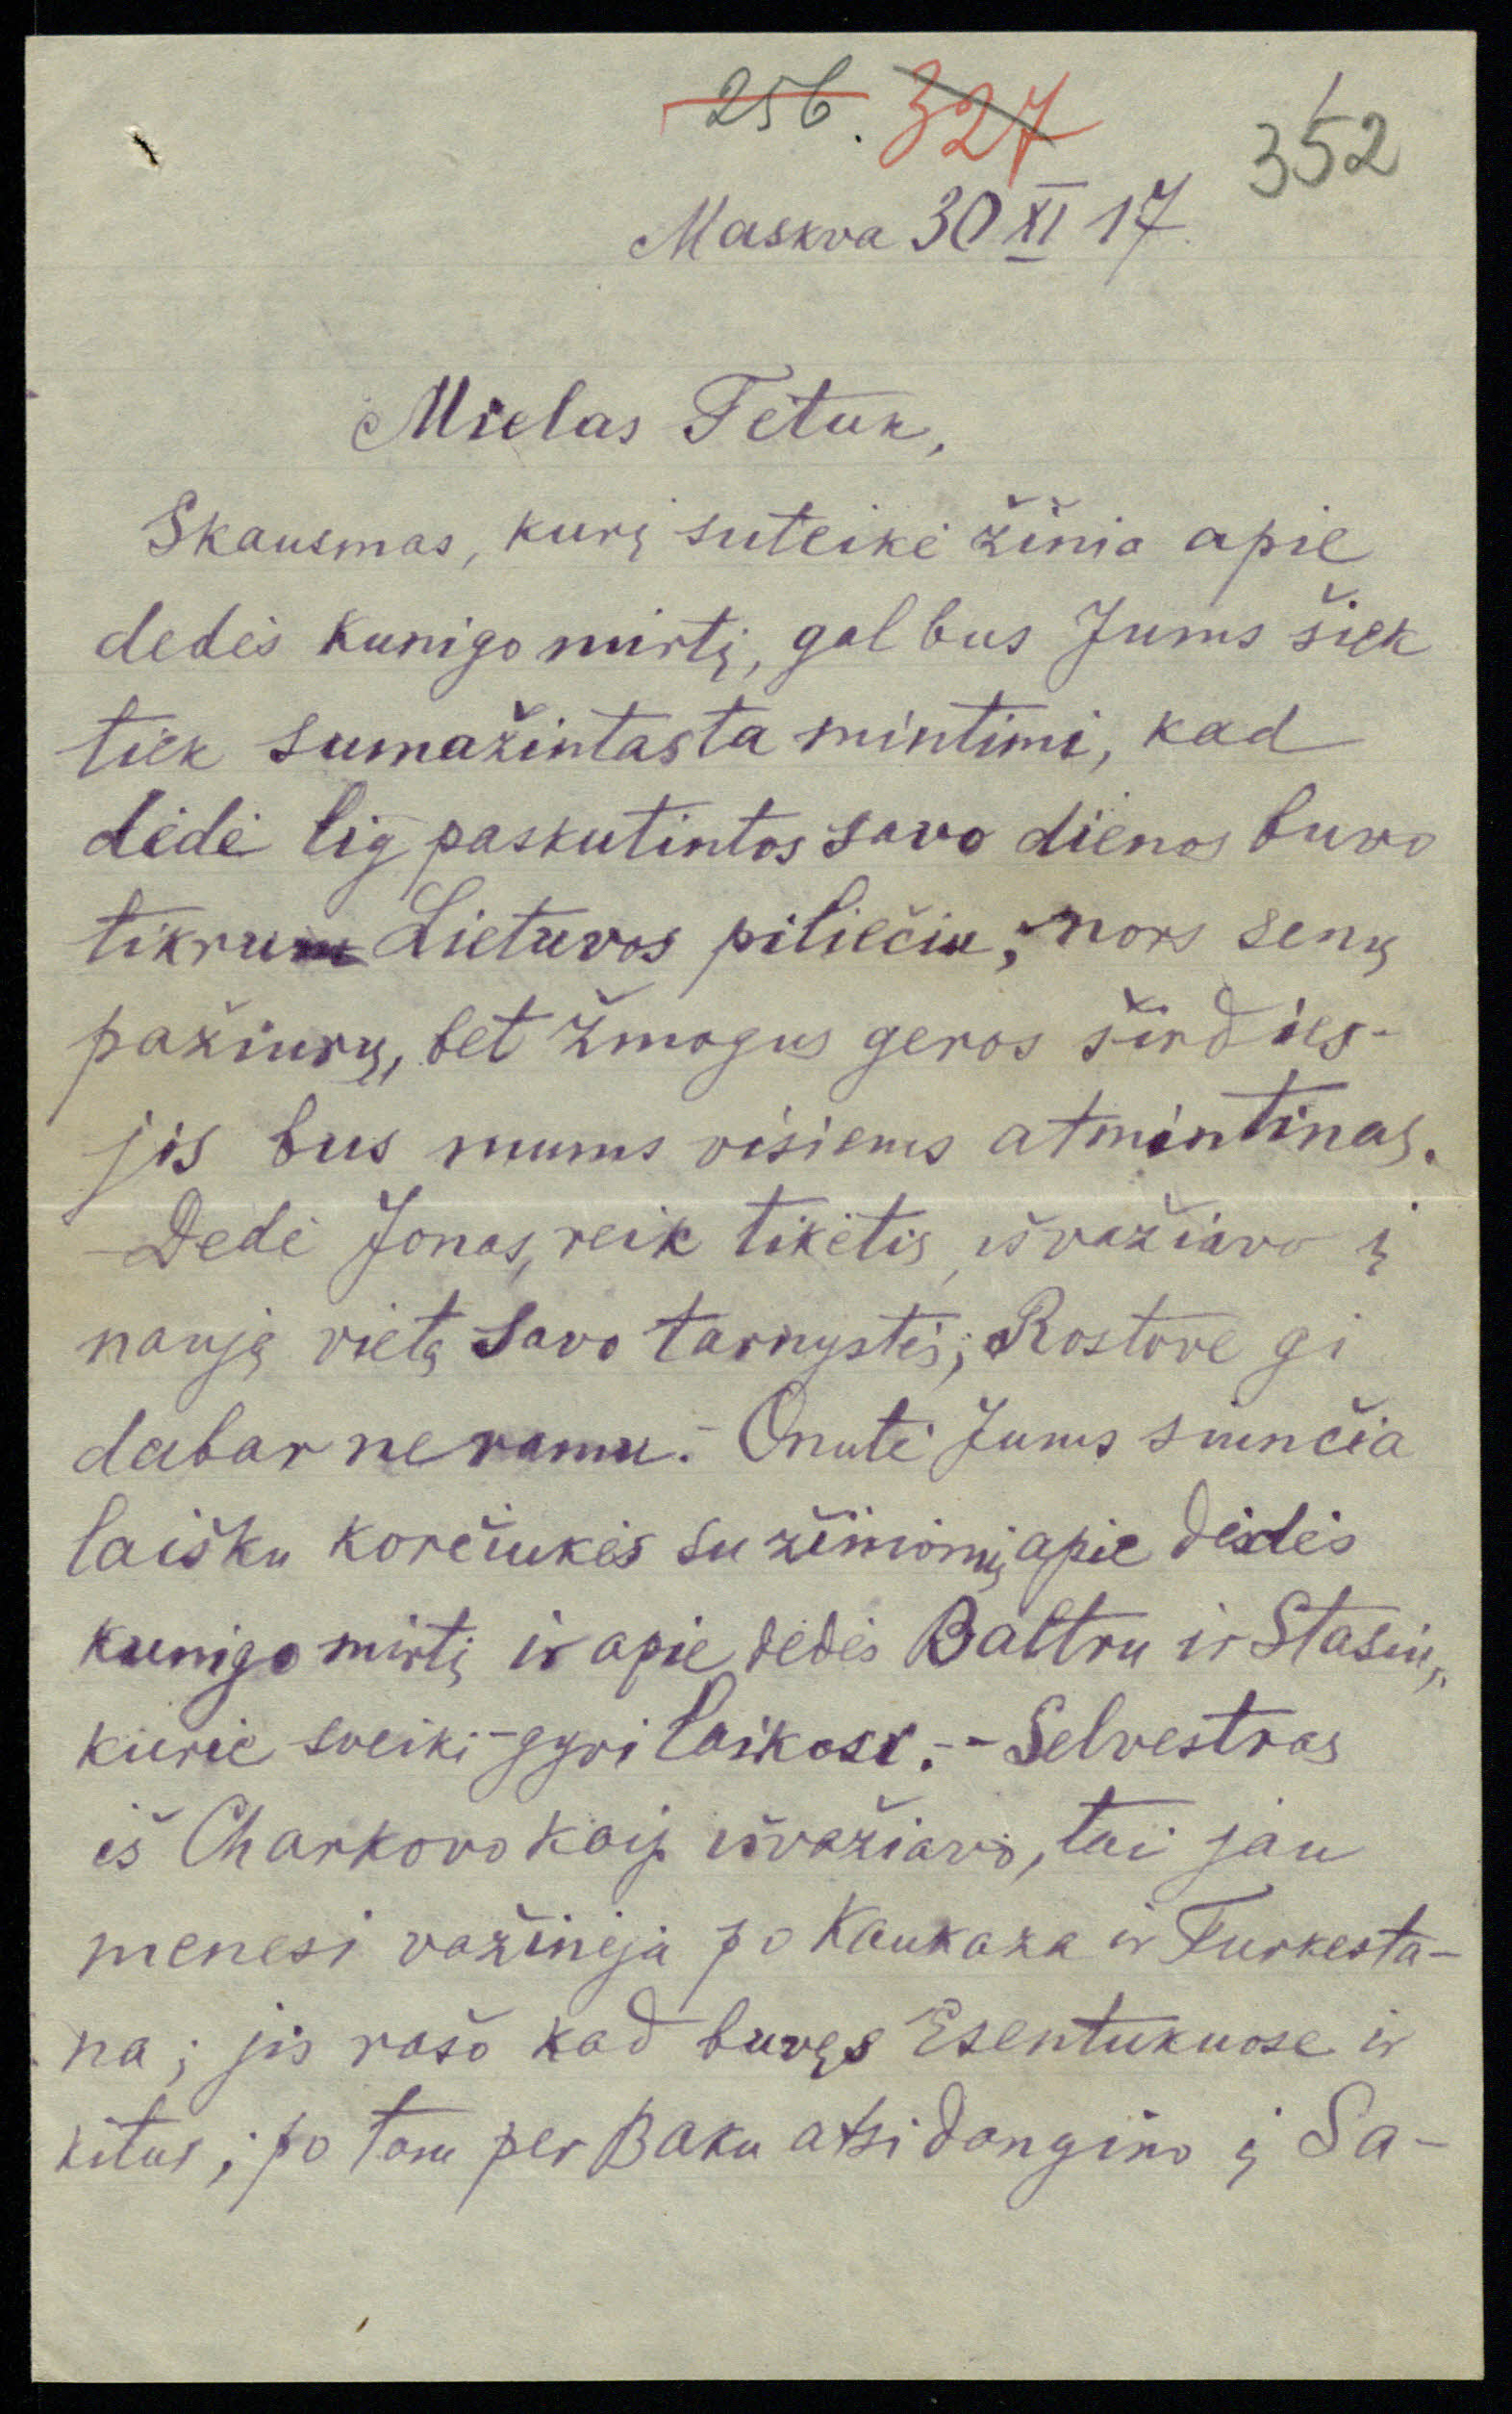 256. 327
352
Maskva 30 XI 17
Mielas Tetuk,
Skausmas, kurį suteikė žinia apie
dedės kunigo mirtį, gal bus Jums šiek
tiek sumažintas ta mintimi, kad
dėdė lig paskutintos savo dienos buvo
tikru Lietuvos piliečiu; nors senų
pažiurų, bet žmogus geros širdies-
jis bus mums visiems atmintinas.
-Dedė Jonas, reik tikėtis, išvažiavo į
nauję vietą savo tarnystės; Rostove gi
dabar ne ramu.- Onutė Jums siunčia
laišku korčiukės su žiniomį apie dėdės
kunigo mirtį ir apie dėdės Baltru ir Stasiu,
kurie sveiki-gyvi laikosi.-- Selvestras
iš Charkovo kaip išvažiavo, tai jau
menesi važinėja po Kaukaza ir Turkesta-
na; jis rašo kad buvęs Esentukuose ir
kitus; po tam per Baku atsidangino į Sa-